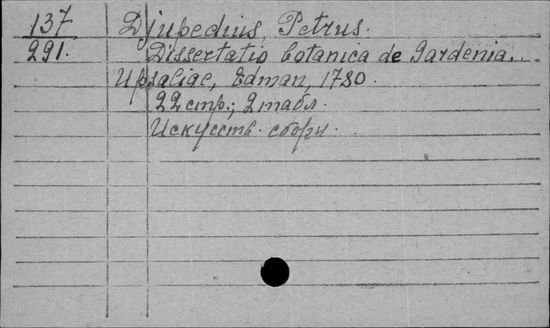 137 Djupedius, Petrus.
291. Dissertatio botanica de Gardenia.
Upsaliae, Edman, 1780.
22 стр.; 2 табл.
Искусств. сборн.